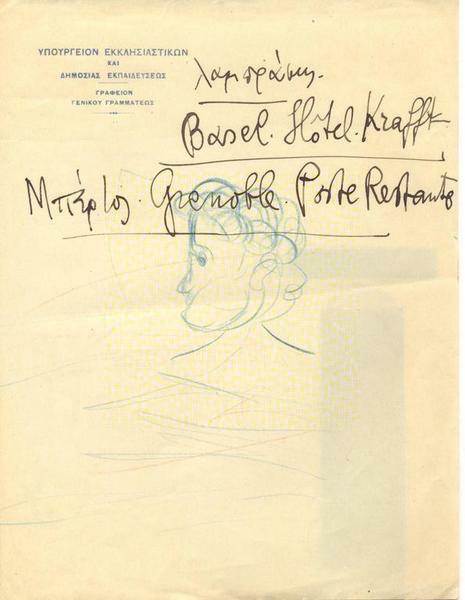 ΥΠΟΥΡΓΕΙΟΝ ΕΚΚΛΗΣΙΑΣΤΙΚΩΝ
ΚΑΙ
ΔΗΜΟΣΙΑΣ ΕΚΠΑΙΔΕΥΣΕΩΣ
ΓΡΑΦΕΙΟΝ
ΓΕΝΙΚΟΥ ΓΡΑΜΜΑΤΕΩΣ
Λαμπράκης.
Basel. Hôtel. Krafft
Μπέρτος. Grenoble. Poste Restante